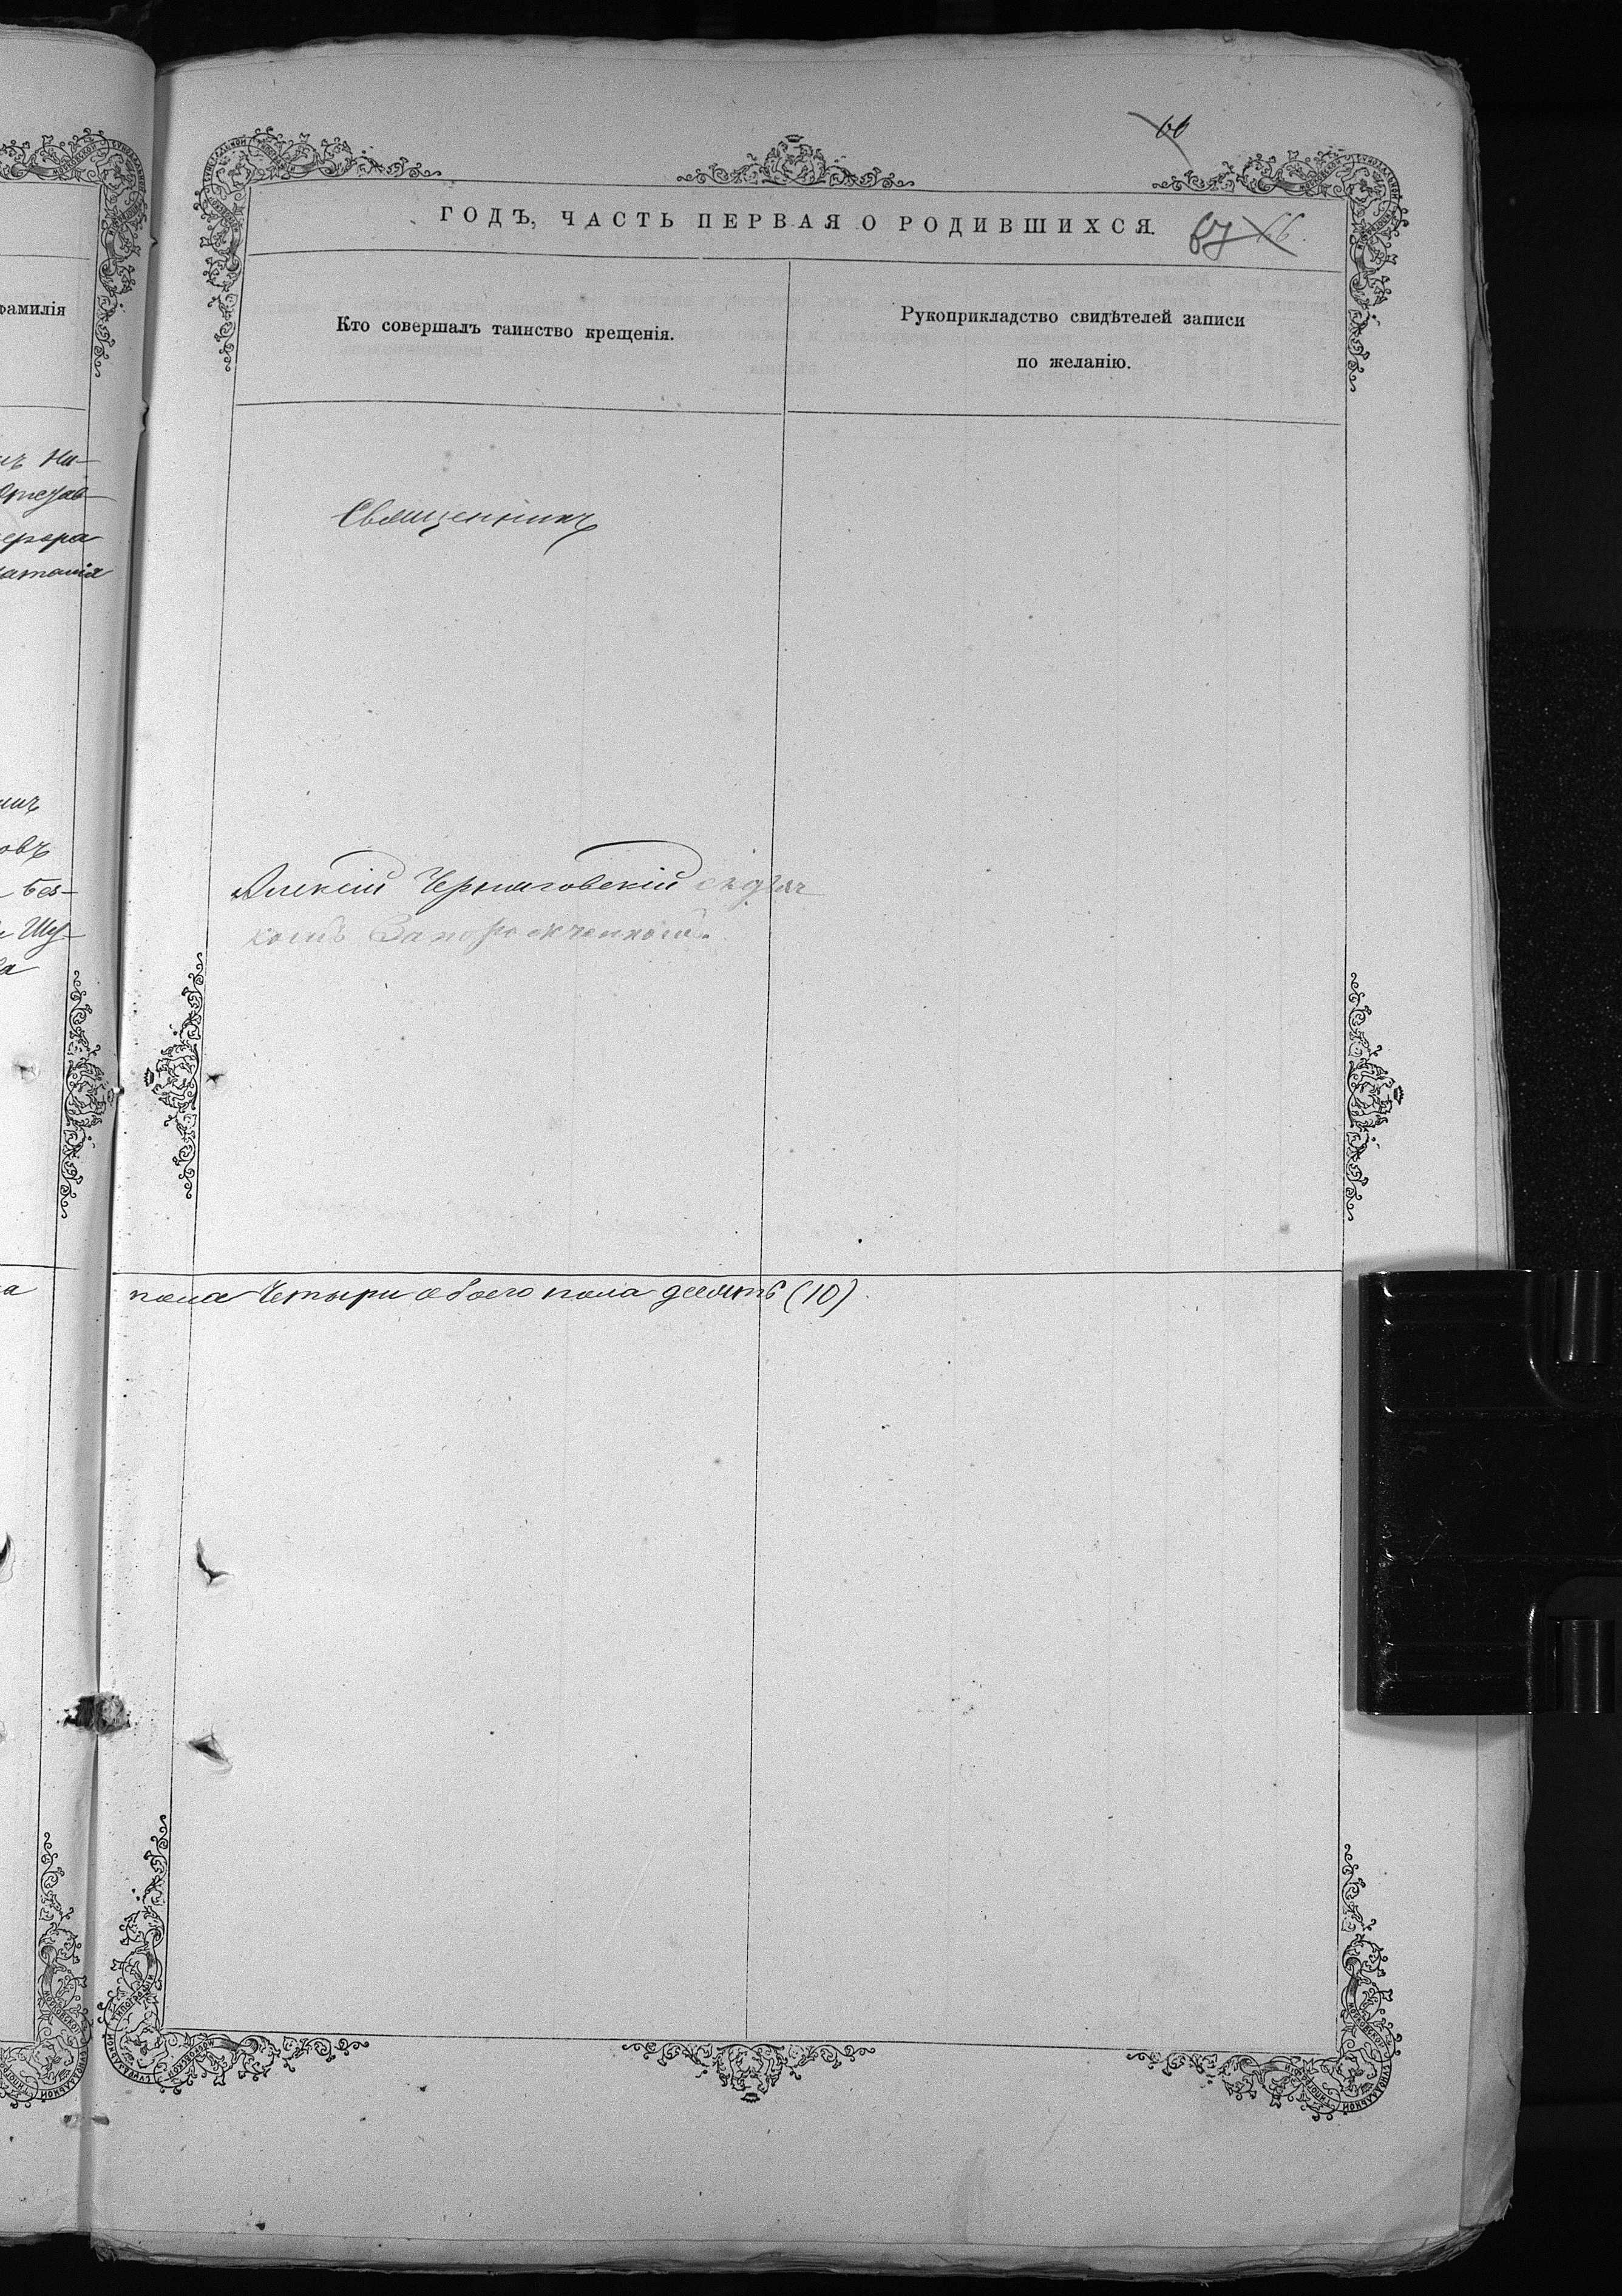 66
ГОДЪ, ЧАСТЬ ПЕРВАЯ О РОДИВШИХСЯ. 67 66.
фамилія
Кто совершалъ таинство крещенія.
Рукоприкладство свидѣтелей записи
по желанію.
Священникъ
овъ
Без-
Шу-
Алексій Черниговскій съ дьяч
комъ Запорожченкомъ.
а
пола Четыри обоего пола десять (10)